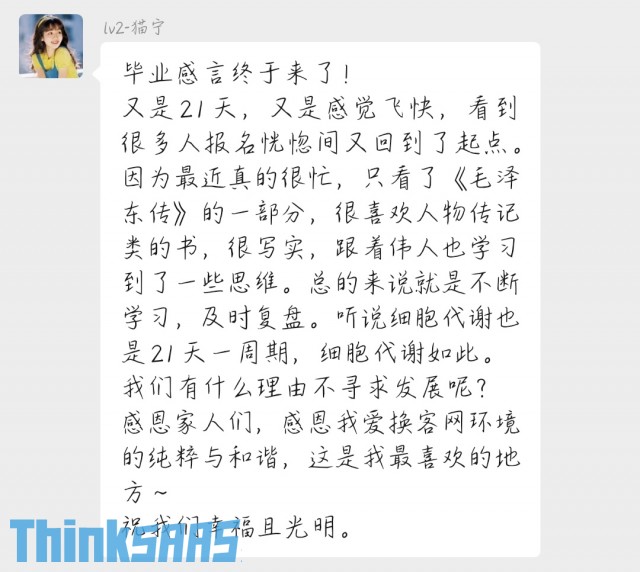 lv2-猫宁
毕业感言终于来了！
又是21天，又是感觉飞快，看到
很多人报名恍惚间又回到了起点。
因为最近真的很忙，只看了《毛泽
东传》的一部分，很喜欢人物传记
类的书，很写实，跟着伟人也学习
到了一些思维。总的来说就是不断
学习，及时复盘。听说细胞代谢也
是21天一周期，细胞代谢如此。
我们有什么理由不寻求发展呢？
感恩家人们，感恩我爱换客网环境
的纯粹与和谐，这是我最喜欢的地
方～
祝我们幸福且光明。
ThinkSAAS